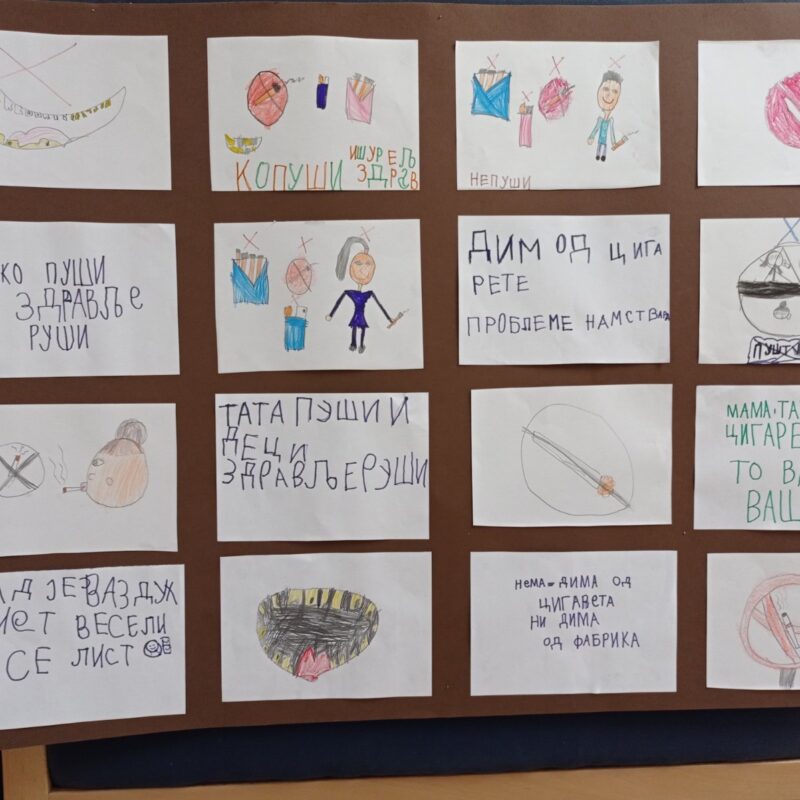 КОПУШИ
ИШУРЕЉ
ЗДРГВ
НЕПУШИ
КО ПУШИ
ЗДРАВЉЕ
РУШИ
ДИМ ОД ЦИГА
РЕТЕ
ПРОБЛЕМЕ НАМ СТВАРА
ТАТА ПУШИ И
ДЕЦИ
ЗДРАВЉЕ РУШИ
МАМА, ТА
ЦИГАРЕ
ТО ВА
ВАШ
ЈЕ ВАЗДУХ
ЧИСТ ВЕСЕЛИ
СЕ ЛИСТ
НЕМА ДИМА ОД
ЦИГАВЕТА
НИ ДИМА
ОД ФАБРИКА